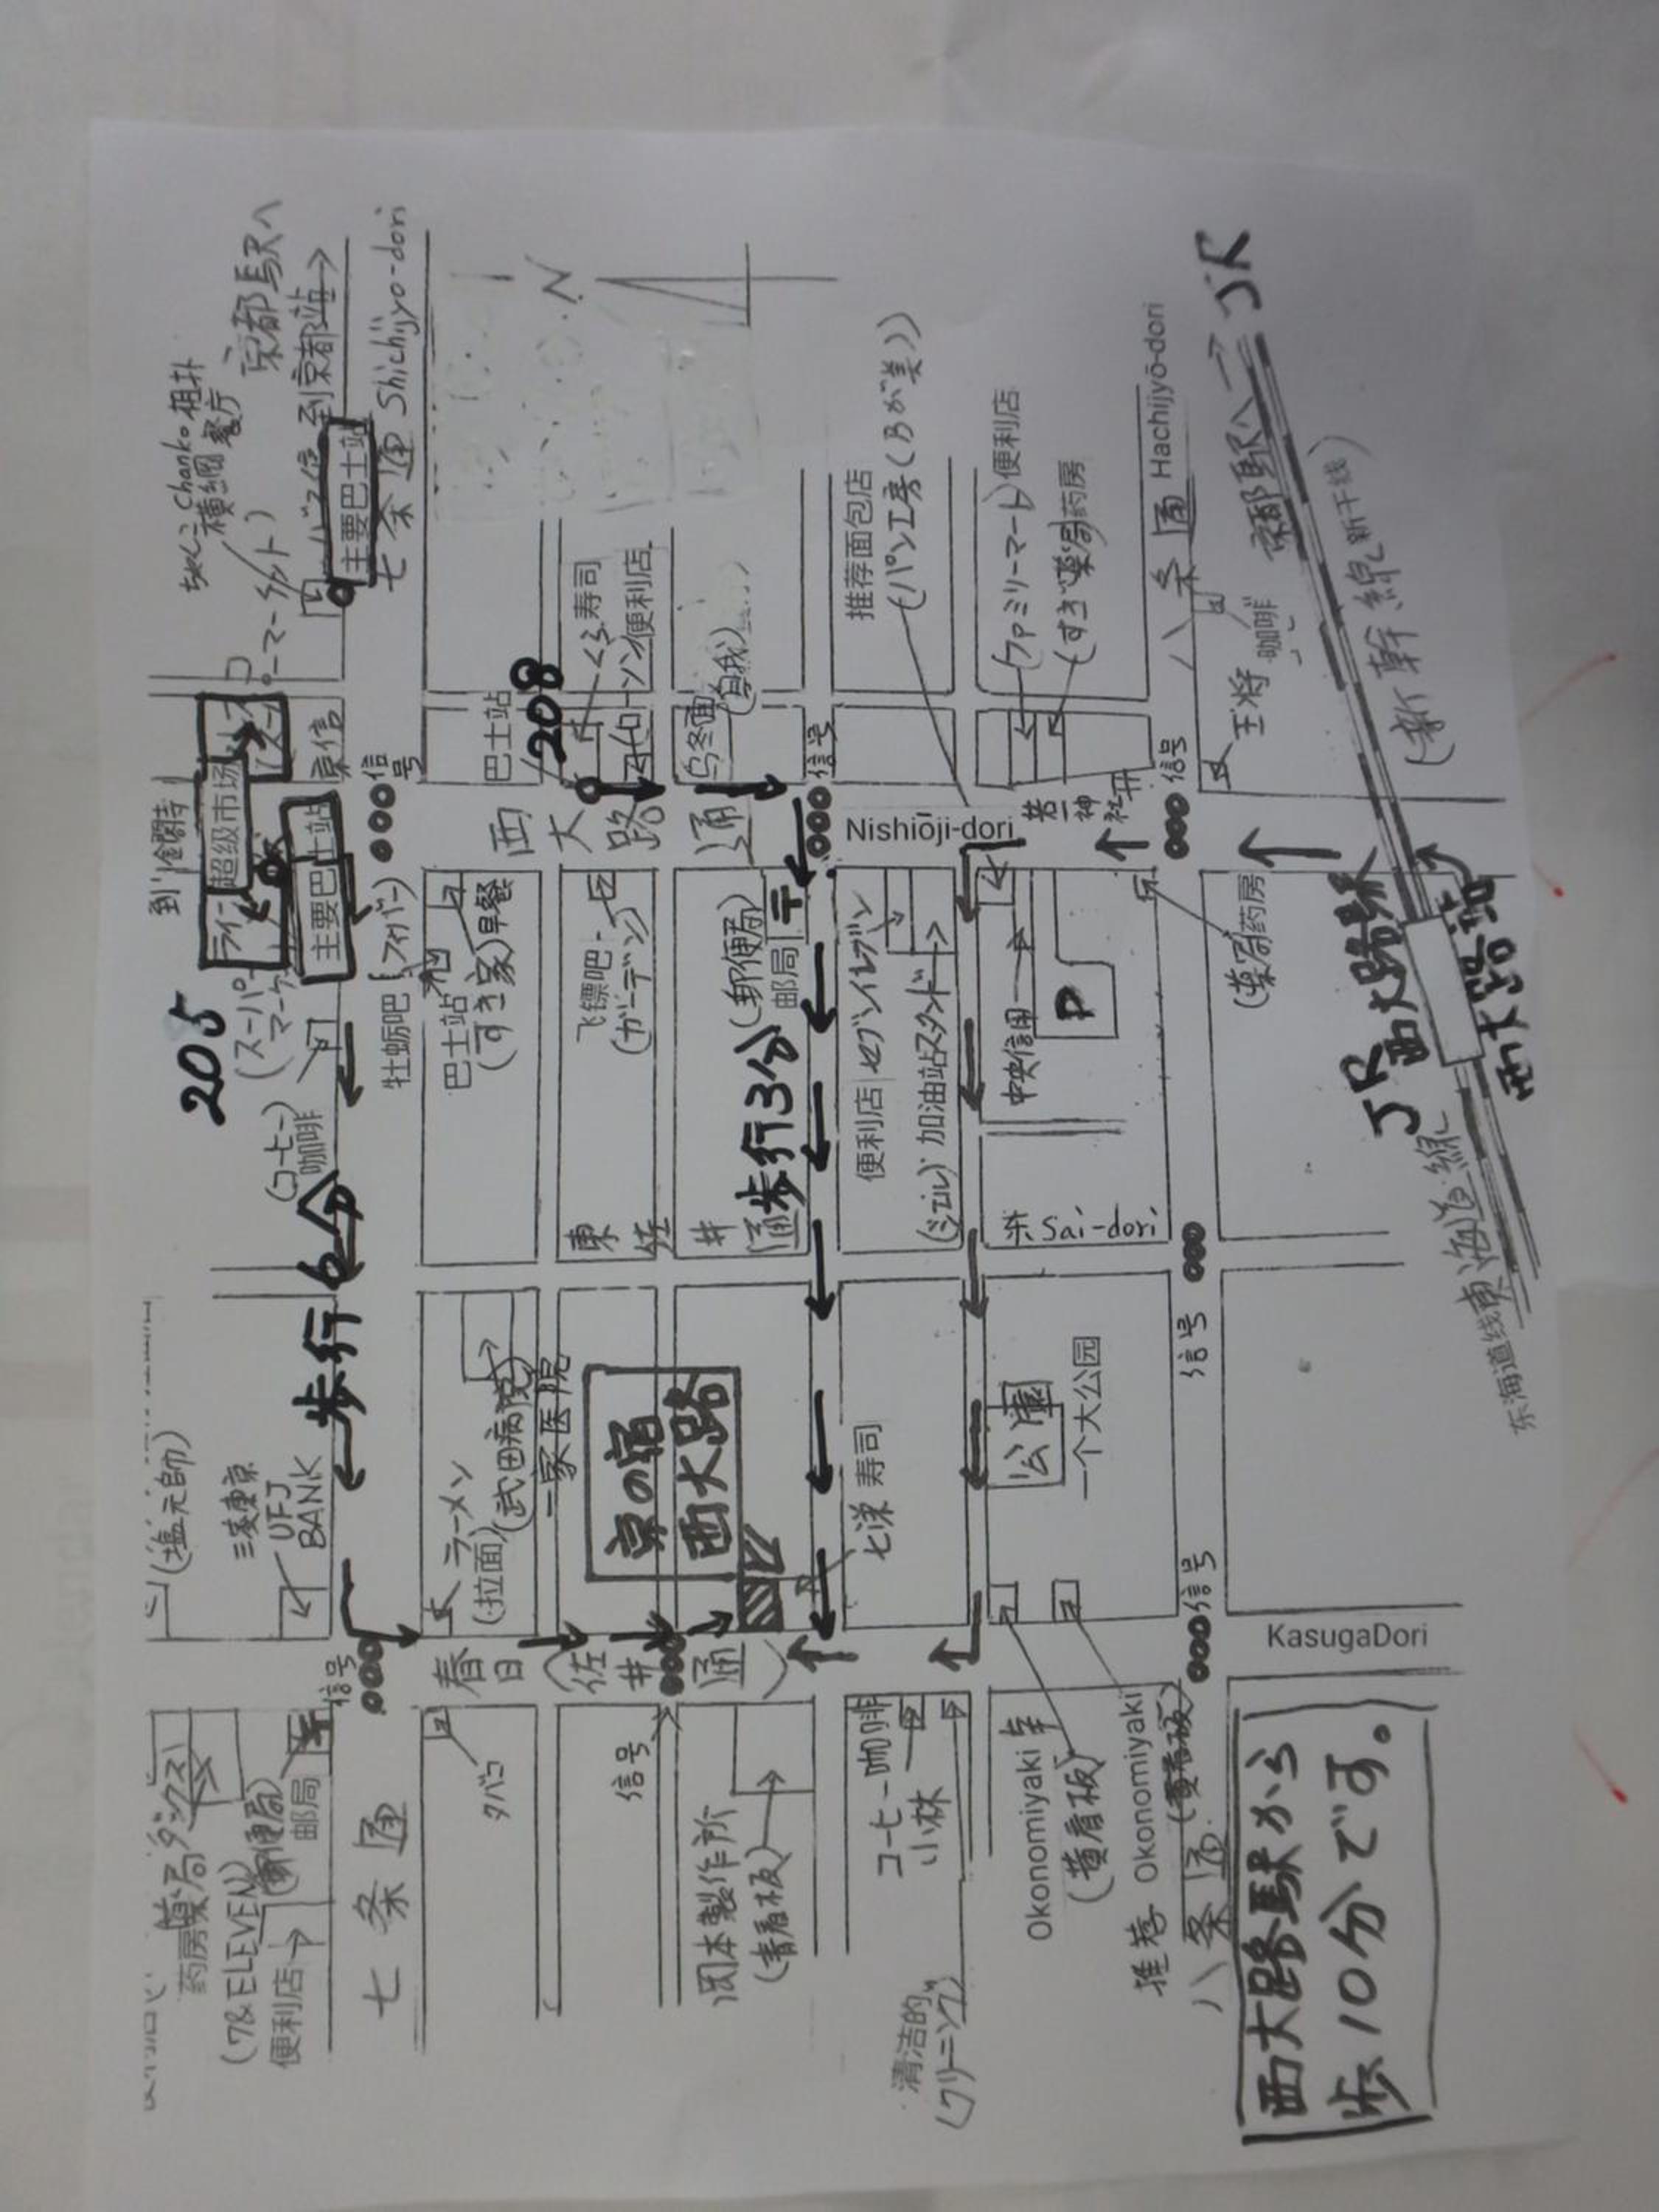 ちゃんこ Chanko 相扑
横綱 餐厅
京都駅へ
到京都站→
主要巴士站
七条通 Shichijyo-dori
N
到金閣寺
超级市场
ライフ
(スーパーマーケット)
主要巴士站
205
京信
信号
(コーヒー)
咖啡
歩行6分
牡蛎吧
巴士站
(すき家)早餐
巴士站
208
くら寿司
(ローソン)便利店
乌冬面
西大路通
飞镖吧
(ガーデン)
(郵便局)
邮局
〒
歩行3分
信号
Nishiōji-dori
推荐面包店
(パン工房(Bが美))
(ファミリーマート)便利店
(すぎ薬局)药房
八条通 Hachijyō-dori
信号
王将
咖啡
京都駅へ→JR
(新幹線)
便利店 セブンイレブン
(シェル)加油站スタンド
中央信用
P
(薬局)药房
JR西大路駅
西大路站
东海道线東海道線
東佐井通
Sai-dori
(塩元帥)
三菱東京
UFJ
BANK
ラーメン
(拉面)
(武田病院)
一家医院
京の宿
西大路
七栄 寿司
公園
一个大公园
信号
信号
信号
春日(佐井通)
KasugaDori
药房薬局
(7&ELEVEN)
便利店
(郵便局)
邮局
七条通
タバコ
信号
岡本製作所
(青看板)
コーヒー咖啡
小林
清洁的
(クリーニング)
Okonomiyaki 幸
(黄看板)
推荐 Okonomiyaki
(黄看板)
八条通
西大路駅から
歩10分です。